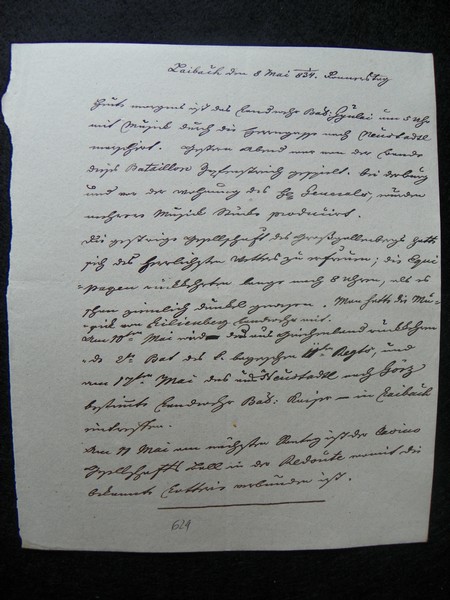 Laibach den 8 Mai 1834. Donnerstag
Heute morgens ist das Landwehr Baõ: Gyulai um 5 Uhr
mit Musik durch die Herrngasse nach Neustadtl
marschirt. Gestern Abend war von der Bande
dieses Bataillons Zapfenstreich gespielt. Bei der Burg
und vor der Wohnung des H: Generals, wurden
mehrere Musik Stücke produciert.
Die gestrige Gesellschaft des Großgallenbergs hatte
sich des herrlichsten Wetters zu erfreuen; die Equi-
pagen rückkehrten lange nach 8 Uhren, als es
schon ziemlich dunkel gewesen. Man hatte die Mu-
sik von Lilienberg Landwehr mit.
Am 10ten Mai wird das aus Griechenland rückkehren-
de 2te Bat des Regts, und
am 17ten Mai das nach Neustadtl nach Görz
bestimte Landwehr Baõ: in Laibach
eintreffen.
Am 11 Mai am nächsten Sontag ist der Casino
Gesellschafts Ball in der Redoute womit die
bekannte Lotterie verbunden ist.
629